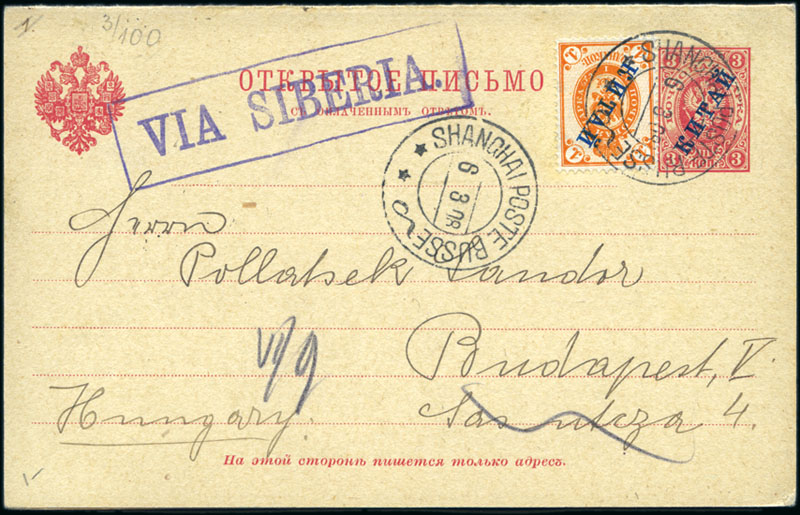 3/100
ОТКРЫТОЕ ПИСЬМО
съ оплаченнымъ отвѣтомъ.
VIA SIBERIA.
КИТАЙ
КИТАЙ
3 3
3 КОП. 3
SHANGHAI POSTE RUSSE
6 3 08
SHANGHAI POSTE RUSSE
6 3 08
Herrn
Pollatsek Sandor
Budapest, V.
Hungary. Sas utcza 4.
На этой сторонѣ пишется только адресъ.